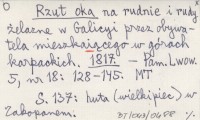 Rzut oka na rudnie i rudy
żelazne w Galicyi przez obywa-
tela mieszkającego w górach
karpackich. 1817. – Pam. Lwow.
5, nr 18: 128-145. MT
S. 137: huta (wielkipiec) w
Zakopanem.